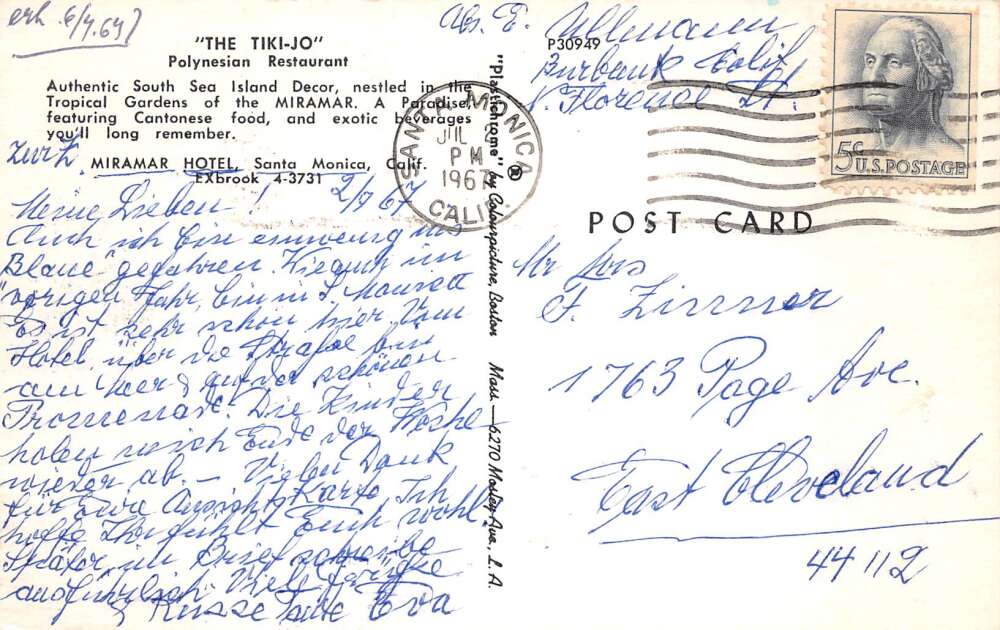 erh. 6/7.67
"THE TIKI-JO"
Polynesian Restaurant
Authentic South Sea Island Decor, nestled in the
Tropical Gardens of the MIRAMAR. A Paradise,
featuring Cantonese food, and exotic beverages
you'll long remember.
MIRAMAR HOTEL, Santa Monica, Calif.
EXbrook 4-3731
2/7 67
Meine Lieben!
Auch ich bin ein wenig ins
Blaue "gefahren. Wie auch im
vorigen Jahr, bin in S. Monica
Es ist sehr schön hier. Vom
Hotel über die Straße bin
am Meer & auf der schönen
Promenade. Die Kinder
holen mich Ende der Woche
wieder ab. – Vielen Dank
für Eure Ansichts Karte, Ich
hoffe Ihr fühlt Euch wohl
Später im Brief schreibe
ausführlich. Viele
& Küsse Tante Eva
"Plastichrome" ® by Colourpicture, Boston Mass. — 6270 Mosley Ave., L. A.
Abs. E. Ullmann
P30949
Burbank Calif
N. Florence St.
SANTA MONICA
JUL
PM
1967
CALIF.
5¢ U.S. POSTAGE
POST CARD
Mr Mrs
F. Zinner
1763 Page Ave.
East Cleveland
44112